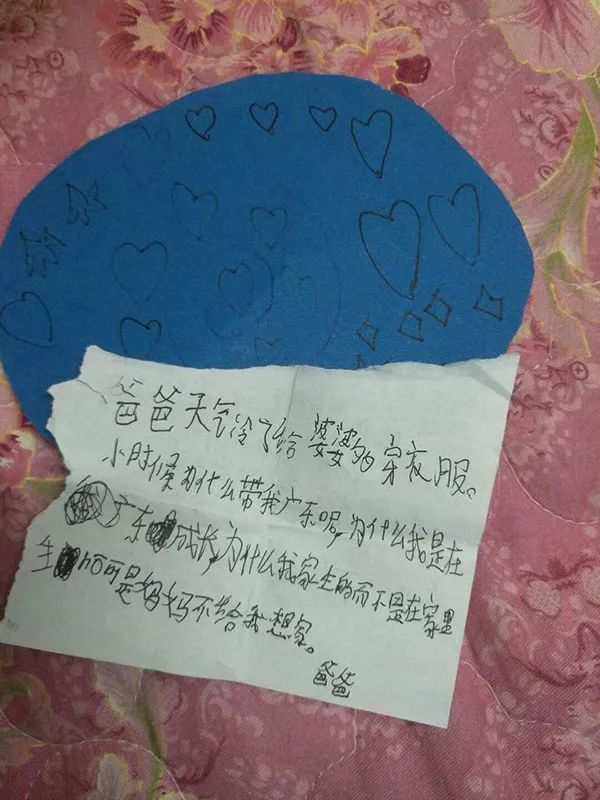 爸爸天气冷了给婆婆的穿衣服。
小时候为什么带我广东呢,为什么我是在
广东成长,为什么我家生的而不是在家里
生 可是妈妈不给我想家。
爸爸